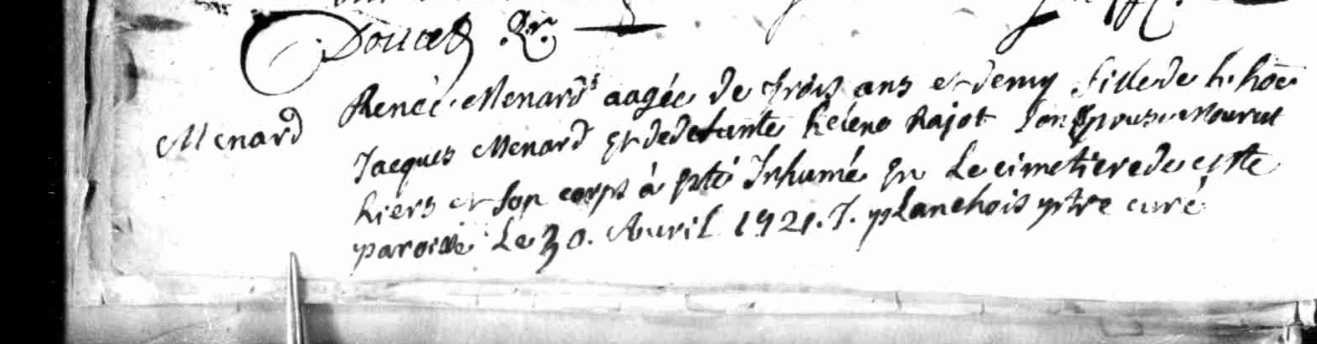 Doucet
Menard
Renée Menard aagée de trois ans et demy fille de h. hôe
Jacques Menard et dedefunte heleno Rajot Son Epouse mourut
hiers et Son corps à Esté Inhumé En Le cimetiere de cette
paroisse Le 30. Auril 1721. J. planchois ptre curé